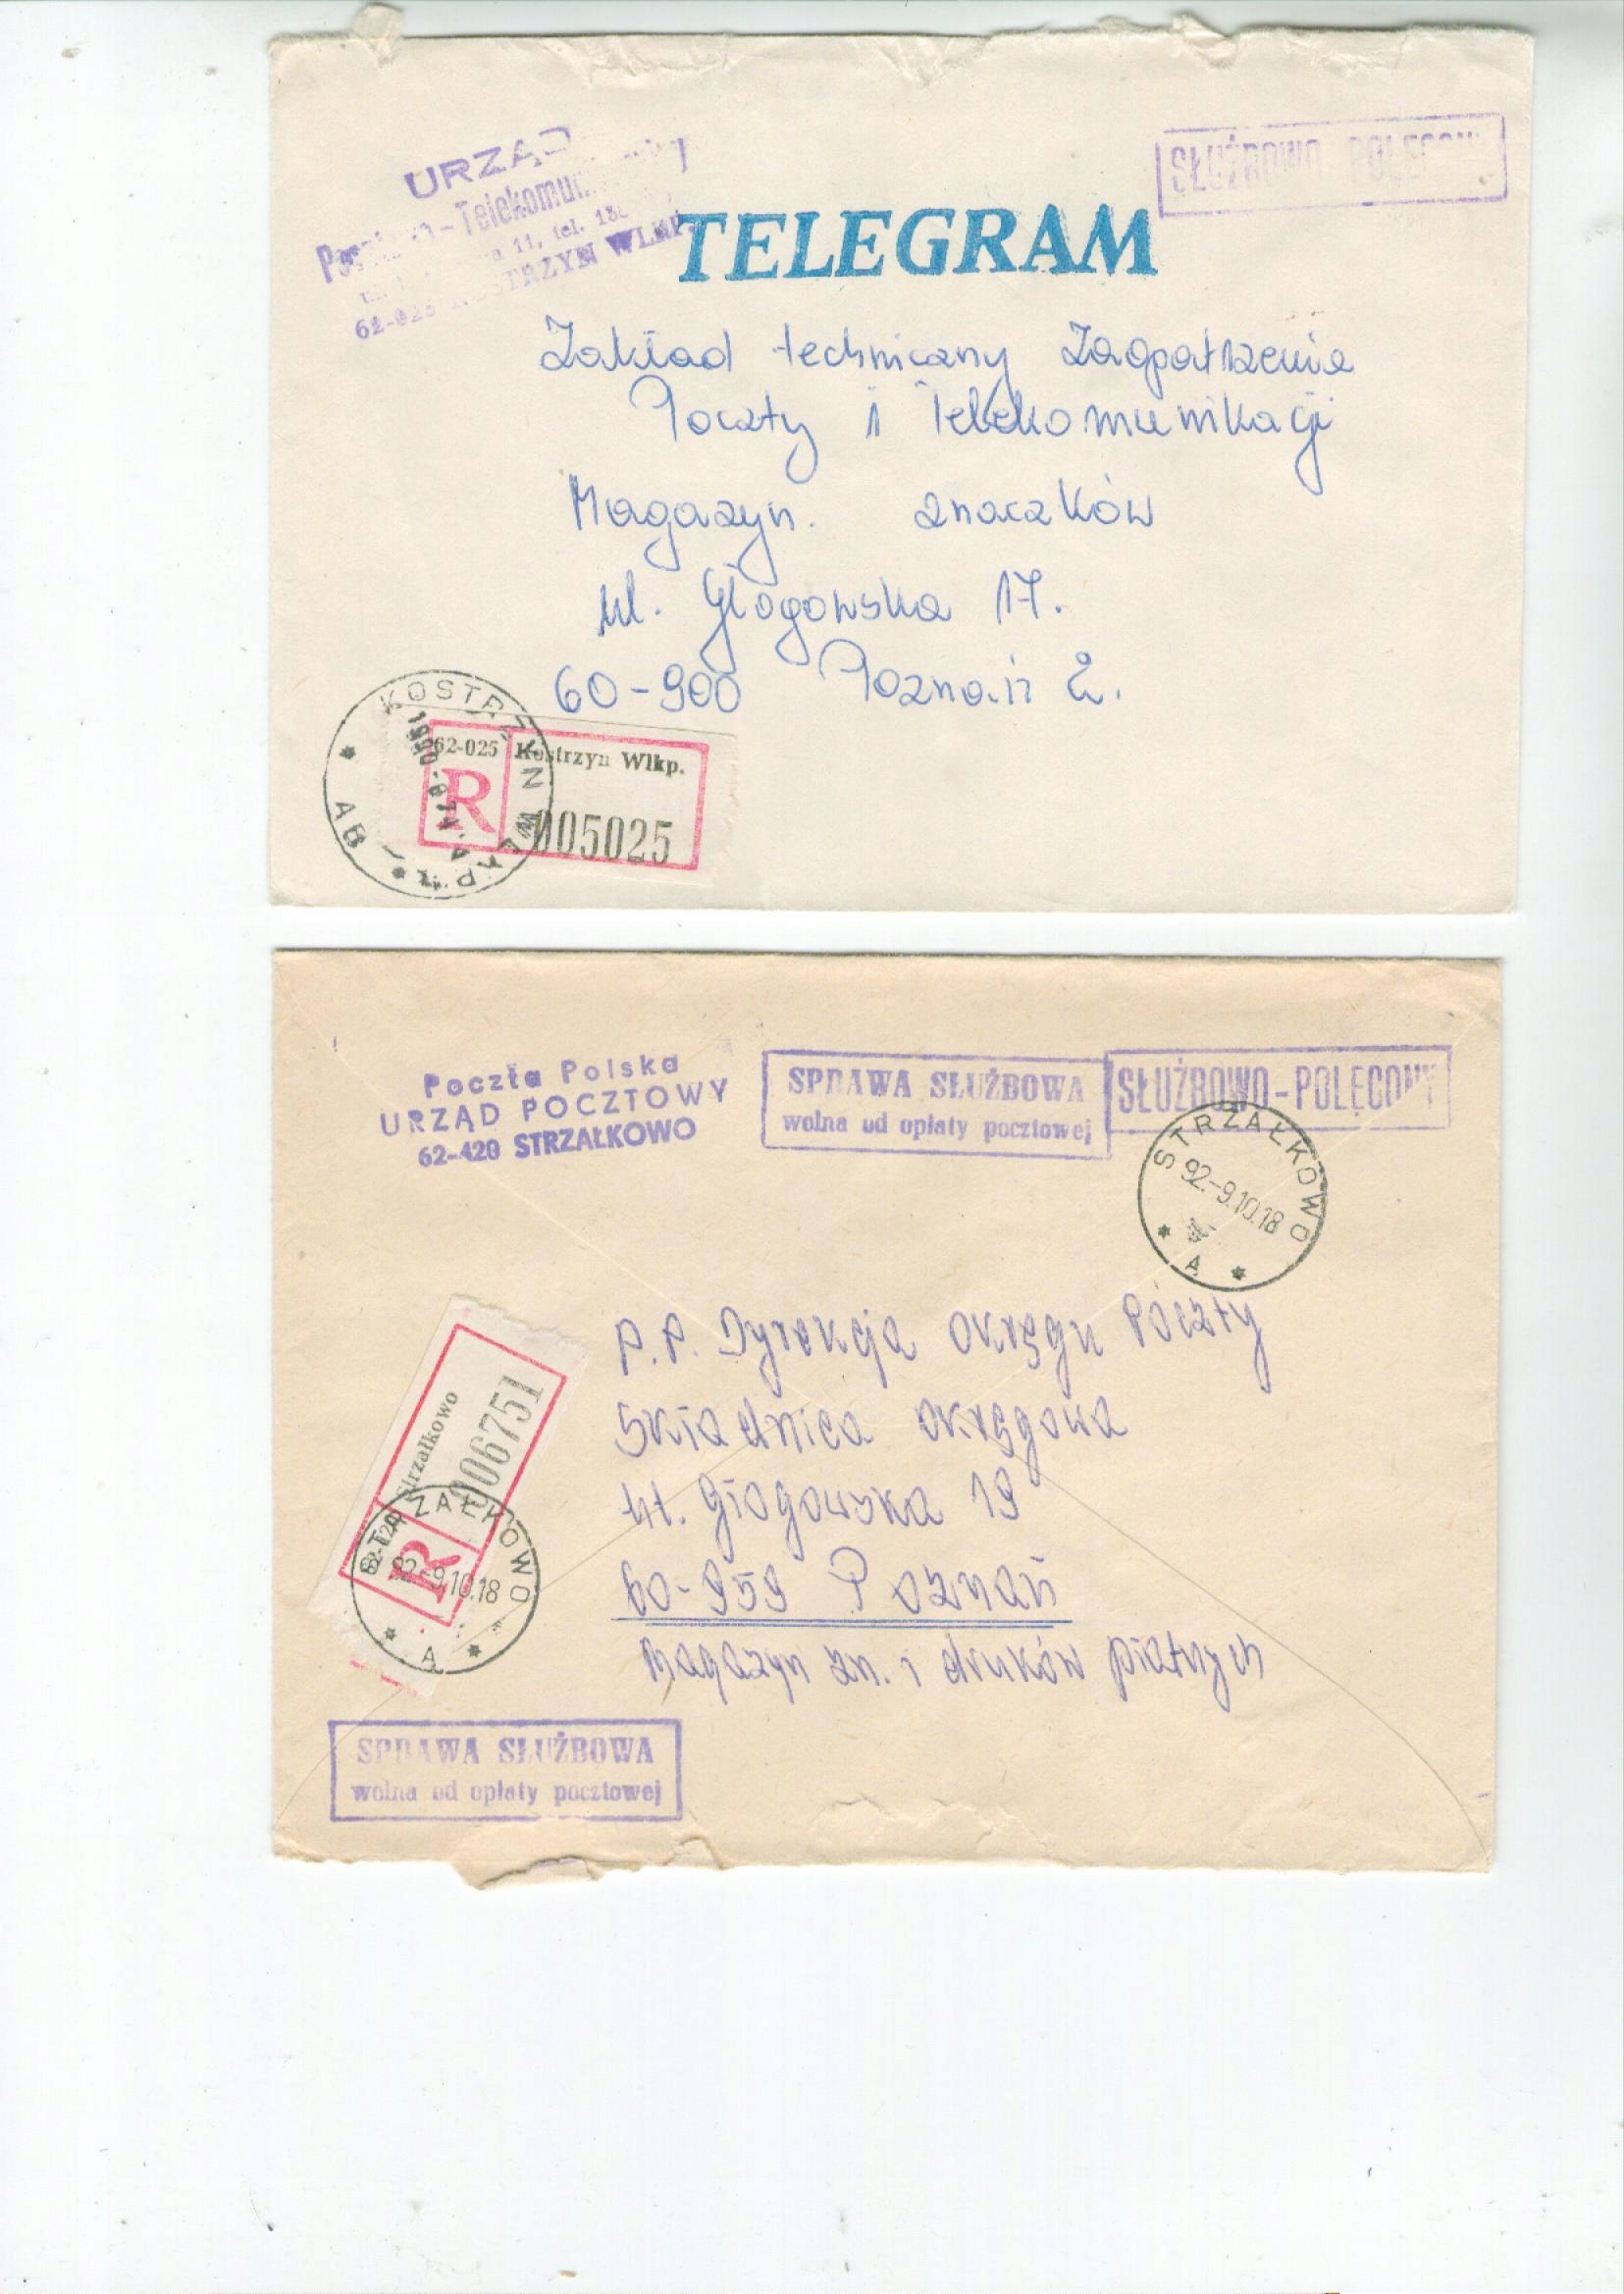 URZĄD
11, tel.
62-025 KOSTRZYN WLKP.
SŁUŻBOWO POLECONY
TELEGRAM
Zakład techniczny Zaopatrzenia
Poczty i Telekomunikacji
Magazyn. znaczków
ul. Głogowska 17.
60-900 Poznań 2.
KOSTRZYN WLKP.
AB
62-025 Kostrzyn Wlkp.
R
005025
Poczta Polska
URZĄD POCZTOWY
62-420 STRZAŁKOWO
SPRAWA SŁUŻBOWA
wolna od opłaty pocztowej
SŁUŻBOWO-POLECONY
STRZAŁKOWO
92-9.10.18
A
P.P. Dyrekcja Okręgu Poczty
Składnica okręgowa
ul. Głogowska 19
60-959 Poznań
Magazyn zn. i druków płatnych
62-420 Strzałkowo
R
006751
STRZAŁKOWO
92-9.10.18
A
SPRAWA SŁUŻBOWA
wolna od opłaty pocztowej